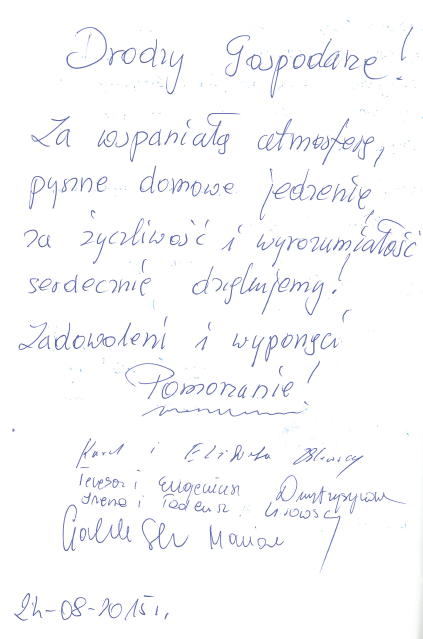 Drodzy Gospodarze!
Za wspaniałą atmosferę,
pyszne domowe jedzenie,
za życzliwość i wyrozumiałość
serdecznie dziękujemy!
Zadowoleni i wypoczęci
Pomorzanie!
Karol i Elżbieta
Teresa i Eugeniusz
Irena i Tadeusz
Marian
24-08-2015r.